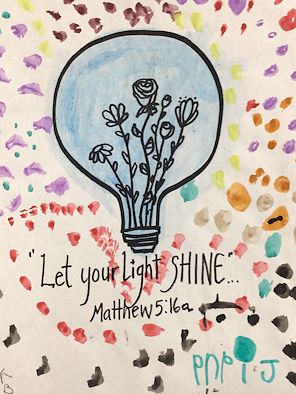 "Let your light SHINE"...
Matthew 5:16a